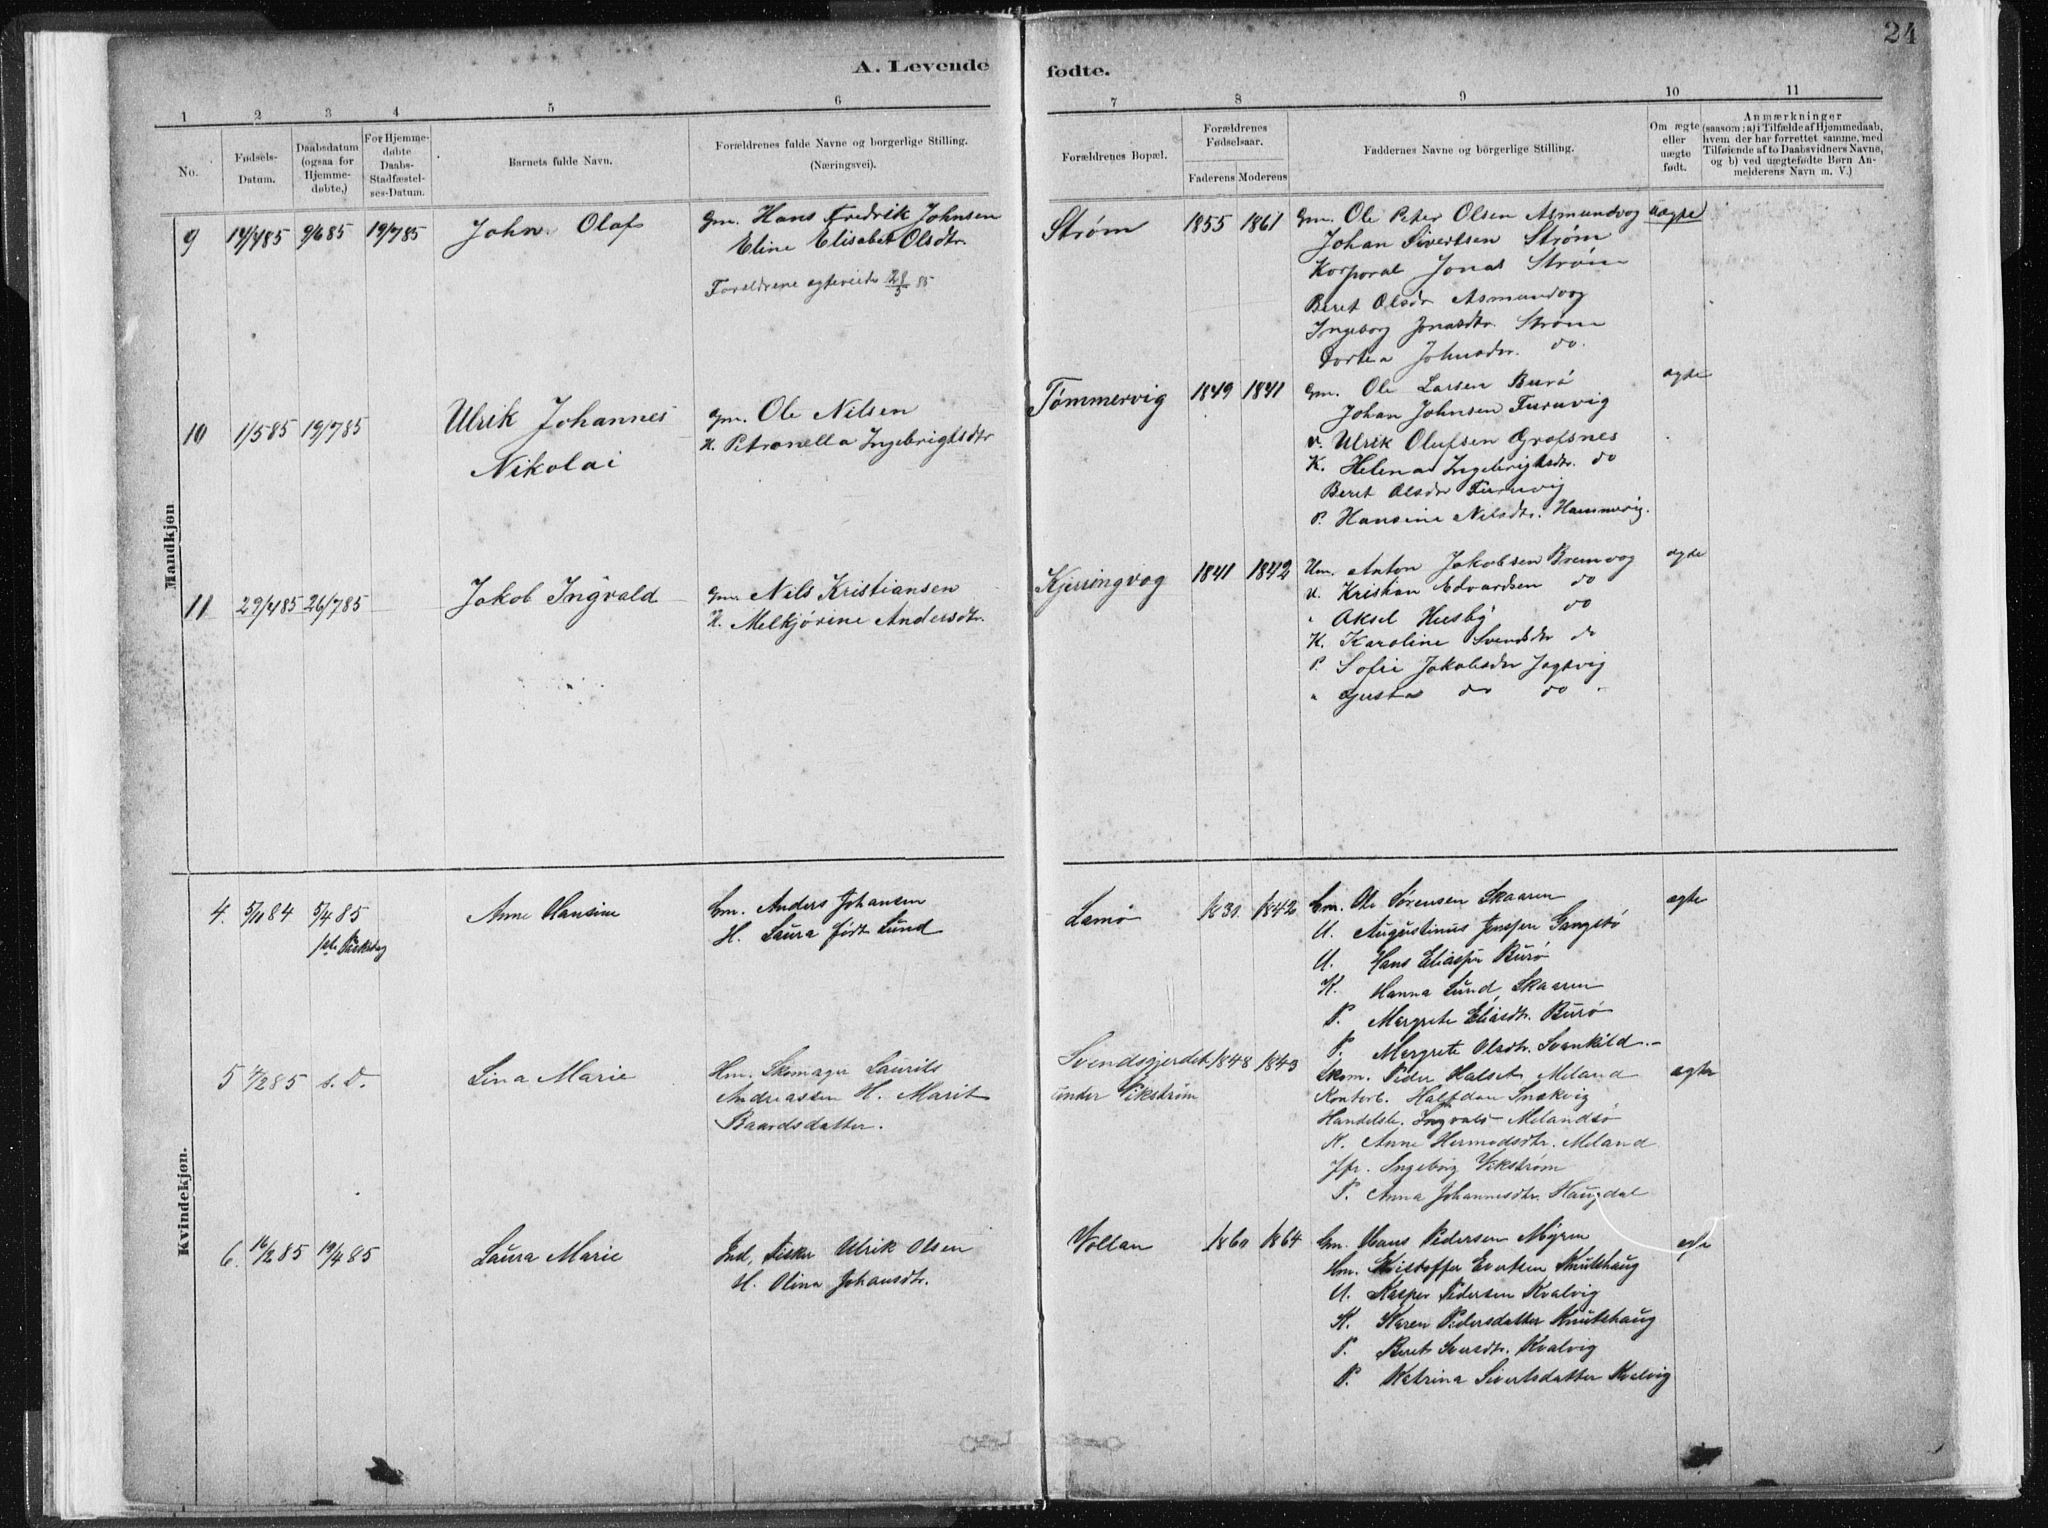 24
A. Levende fødte.
1 2 3 4 5 6 7 8 9 10 11
No.
Fødsels-Datum.
Daabsdatum (ogsaa for Hjemme-døbte,)
For Hjemme-døbte Daabs-Stadfæstel-ses-Datum.
Barnets fulde Navn.
Forældrenes fulde Navne og borgerlige Stilling. (Næringsvei).
Forældrenes Bopæl.
Forældrenes Fødselsaar.
Faderens Moderens
Faddernes Navne og borgerlige Stilling.
Om ægte eller uægte født.
Anmærkninger (saasom: a) i Tilfælde af Hjemmedaab, hvem der har forrettet samme, med Tilføiende af to Daabsvidners Navne, og b) ved uægtefødte Børn An-melderens Navn m. V.)
Mandkjøn
9 14/4 85 9/6 85 19/7 85 John Olaf
Gm. Hans Fredrik Johnsen
Eline Elisabet Olsdtr.
Forældrene egteviede 28/5 85
Strøm 1855 1861
Gm. Ole Peter Olsen Asmundvog uægte
Johan Sivertsen Strøm
Korporal Jonas Strøm
Beret Olsdr Asmundvog
Ingeborg Jonasdtr. Strøm
Dortea Johnsdr. do.
10 1/5 85 19/7 85 Ulrik Johannes
Nikolai
Gm. Ole Nilsen
H. Petronella Ingebrigtsdtr
Tømmervig 1849 1841
Gm. Ole Larsen Burø ægte
Johan Johnsen Furuvig
U. Ulrik Olufsen Grofsnes
K. Helena Ingebrigtsdtr. do
Beret Olsdr Furuvig
P. Hansine Nilsdtr. Hammervig.
11 29/4 85 26/7 85 Jakob Ingvald
Gm. Nils Kristiansen
H. Melkjørine Andersdtr.
Kjerringvog 1841 1842
Um. Anton Jakobsen Bremvog ægte
U. Kristian Edvardsen do
" Aksel Husby do
K. Karoline Svendsdr do
P. Sofie Jakobsdr Jagtvig
" Gusta do do
Kvindekjøn.
4. 5/11 84 5/4 85 Anne Hansine
1ste Paaskedag
Gm. Anders Johansen
H. Laura født Lund
Lamø 1842
Gm. Ole Sørensen Skaaren ægte
U. Augustinus Jenssen Gangstø
U. Hans Eliassen Burø
K. Hanna Lund Skaaren
P. Margrete Eliasdtr. Burø
P. Margrete Olsdtr. Svankild
5 4/2 85 s. D. Lina Marie
Hm. Skomager Laurits
Andreassen H. Marit
Baardsdatter.
Svendsgjerdet 1848 1843
under Vikstrøm
Skom. Peder Halset Meland ægte
Kontorb. Halfdan Snekvig
Handelsb. Ingvald Melandsø
K. Anne Hermodsdtr. Meland
Jfr. Ingeborg Vikstrøm
P. Anna Johannesdtr. Haugdal
6. 16/2 85 19/4 85 Laura Marie
Ind, Fisker Ulrik Olsen
H. Olina Johansdtr.
Vollan 1860 1864
Gm. Hans Pedersen Myren ægte
Hm. Kristoffer Evertsen Knutshaug
U. Kasper Pedersen Kvalvig
K. Karen Pedersdatter Knutshaug
P. Beret Iversdtr. Kvalvig
P. Katrina Sivertsdatter Kvalvig